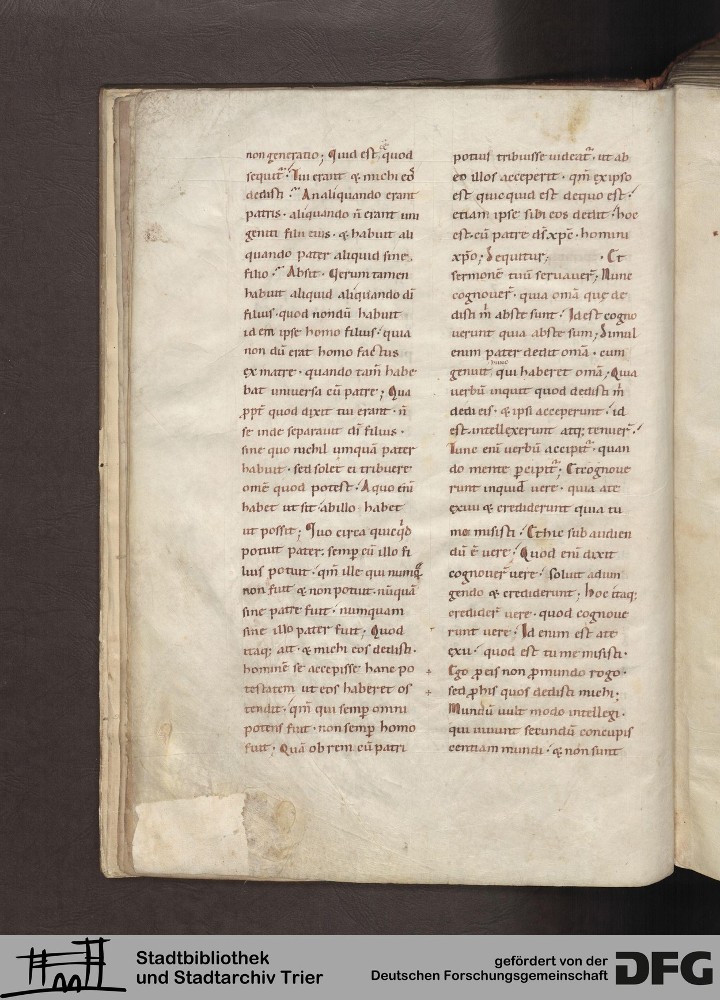 non generatio; Quid est quod
sequit᷑; Tui erant & michi eos
dedisti; An aliquando erant
patris · aliquando n̄ erant uni
geniti filii eius · & habuit ali
quando pater aliquid sine
filio; Absit · Verum tamen
habuit aliquid aliquando dī
filius · quod nondū habuit
idem ipse homo filius · quia
non dū erat homo factus
ex matre · quando tam̄ habe
bat uniuersa cū patre; Qua
ꝓpt̄ quod dixit tui erant · n̄
se inde separauit dī filius ·
sine quo nichil umquā pater
habuit · sed solet ei tribuere
omē quod potest · A quo eni
habet ut sit · ab illo habet
ut possit; Quo circa quicq̇d
potuit pater · semp̄ cū illo fi
lius potuit · qm̄ ille qui numq̄
non fuit & non potuit · nūquā
sine patre fuit · numquam
sine illo pater fuit; Quod
itaq; ait · & michi eos dedisti ·
hominē se accepisse hanc po
testatem ut eos haberet os
tendit · qm̄ qui semp̄ omni
potens fuit · non semp̄ homo
fuit; Quā ob rem cū patri
potius tribuisse uideat᷑ · ut ab
eo illos acceperit · qm̄ ex ipso
est quicquid est de quo est ·
etiam ipse sibi eos dedit · hoc
est · cū patre ds̄ xp̄c · homini
xp̄o; Sequitur; · Et
sermonē tuū seruauer̄; Nunc
cognouer̄ · quia omā quę de
disti m̄ abs te sunt · Id est cogno
uerunt quia abs te sum; Simul
enim pater dedit omā · cum
genuit qui haberet omā; Quia
uerbū inquit quod dedisti m̄
dedi eis · & ipsi acceperunt · id
est · intellexerunt atq; tenuer̄ ·
Tunc eni uerbū accipit᷑ · quan
do mente ꝑcipit᷑; Et cognoue
runt inquid uere · quia a te
exiui & crediderunt quia tu
me misisti · Et hic sub audien
dū ē uere; Quod eni dixit
cognouer̄ uere · soluit adiun
gendo & crediderunt; hoc itaq;
credider̄ uere · quod cognoue
runt uere; Id enim est a te
exii · quod est tu me misisti ·
Ego ꝓ eis non ꝓ mundo rogo ·
sed ꝓ his quos dedisti michi;
Mundū uult modo intellegi ·
qui uiuunt secundū concupis
centiam mundi · & non sunt
Stadtbibliothek
und Stadtarchiv Trier
gefördert von der
Deutschen Forschungsgemeinschaft
DFG